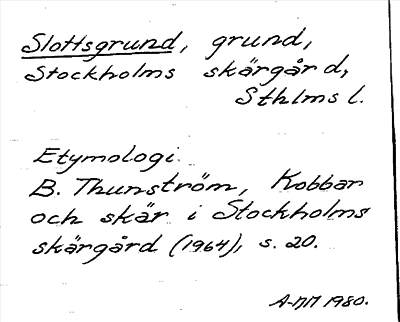 Slottsgrund, grund,
Stockholms skärgård,
Sthlms l.
Etymologi.
B. Thunström, Kobbar
och skär i Stockholms
skärgård (1964), s. 20.
A-MM 1980.